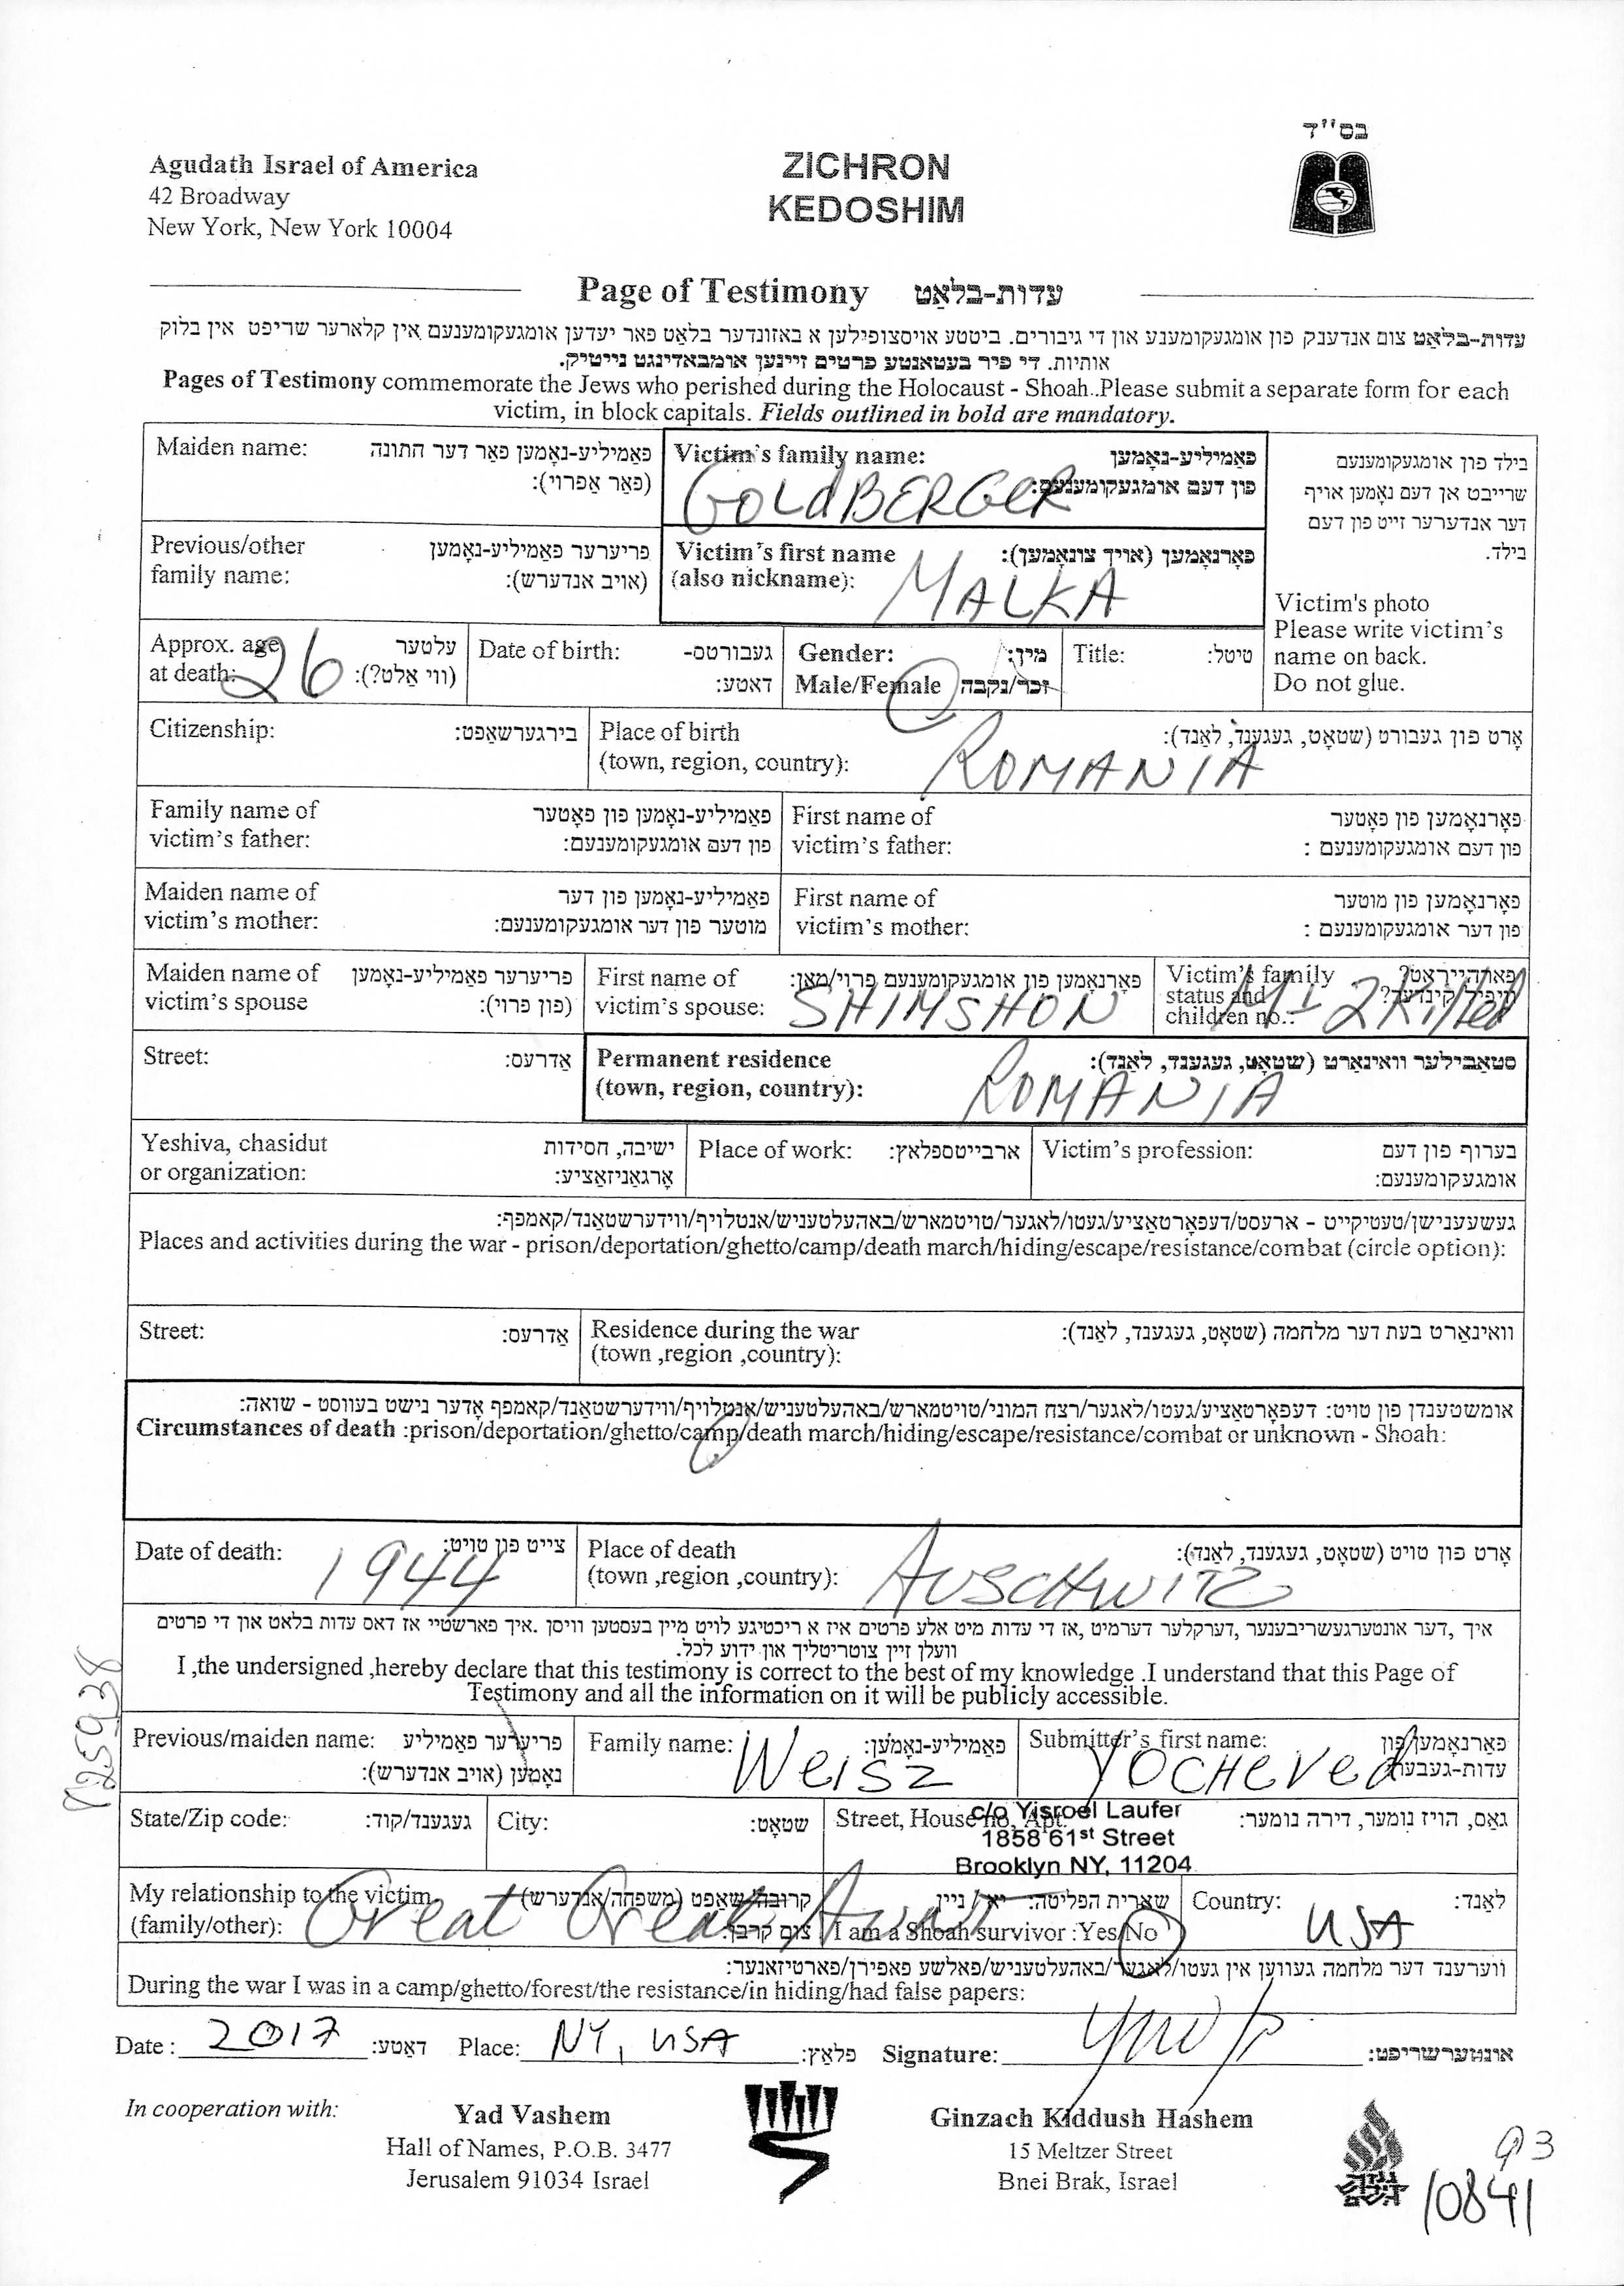 בס"ד
Agudath Israel of America
42 Broadway
New York, New York 10004
ZICHRON
KEDOSHIM
Page of Testimony עדות-בלאַט
עדות-בלאַט צום אנדענק פון אומגעקומענע און די גיבורים. ביטטע אויסצופילען א באזונדער בלאט פאר יעדען אומגעקומענעם אין קלארער שריפט אין בלוק
אותיות. די פיר בעטאנטע פרטים זיינען אומבאדינגט נייטיק.
Pages of Testimony commemorate the Jews who perished during the Holocaust - Shoah..Please submit a separate form for each
victim, in block capitals. Fields outlined in bold are mandatory.
Maiden name: פאַמיליע-נאָמען פאַר דער חתונה
(פאַר אַפרוי):
Victim's family name: פאַמיליע-נאָמען
פון דעם אומגעקומענעם:
GOLdBERGER
בילד פון אומגעקומענעם
שרייבט אן דעם נאָמען אויף
דער אנדערער זייט פון דעם
בילד.
Victim's photo
Please write victim's
name on back.
Do not glue.
Previous/other פריערער פאַמיליע-נאָמען
family name: (אויב אנדערש):
Victim's first name פאָרנאָמען (אויך צונאָמען):
(also nickname): MALKA
Approx. age עלטער
at death: (ווי אַלט?):
26
Date of birth: געבורטס-
דאטע:
Gender: מין:
Male/Female זכר/נקבה
Title: טיטל:
Citizenship: בירגערשאַפט:
Place of birth אָרט פון געבורט (שטאָט, געגענד, לאַנד):
(town, region, country): ROMANIA
Family name of פאַמיליע-נאָמען פון פאָטער
victim's father: פון דעם אומגעקומענעם:
First name of פאָרנאָמען פון פאָטער
victim's father: פון דעם אומגעקומענעם :
Maiden name of פאַמיליע-נאָמען פון דער
victim's mother: מוטער פון דער אומגעקומענעם:
First name of פאָרנאָמען פון מוטער
victim's mother: פון דער אומגעקומענעם :
Maiden name of פריערער פאַמיליע-נאָמען
victim's spouse (פון פרוי):
First name of פאָרנאָמען פון אומגעקומענעם פרוי/מאן:
victim's spouse: SHIMSHON
Victim's family פארהייראט?
status and וויפיל קינדער?
children no.:
M+ 2 Killed
Street: אַדרעס:
Permanent residence סטאַבילער וואוינאָרט (שטאָט, געגענד, לאַנד):
(town, region, country): ROMANIA
Yeshiva, chasidut ישיבה, חסידות
or organization: אָרגאַניזאַציע:
Place of work: ארבייטספלאץ:
Victim's profession: בערוף פון דעם
אומגעקומענעם:
געשעענישן/טעטיקייט - ארעסט/דעפאָרטאַציע/געטו/לאגער/טויטמארש/באהעלטעניש/אנטלויף/ווידערשטאַנד/קאמפף:
Places and activities during the war - prison/deportation/ghetto/camp/death march/hiding/escape/resistance/combat (circle option):
Street: אַדרעס:
Residence during the war וואוינאָרט בעת דער מלחמה (שטאָט, געגענד, לאַנד):
(town ,region ,country):
אומשטענדן פון טויט: דעפאָרטאַציע/געטו/לאגער/רצח המוני/טויטמארש/באהעלטעניש/אנטלויף/ווידערשטאַנד/קאמפף אָדער נישט בעווסט - שואה:
Circumstances of death :prison/deportation/ghetto/camp/death march/hiding/escape/resistance/combat or unknown - Shoah:
Date of death: צייט פון טויט:
1944
Place of death אָרט פון טויט (שטאָט, געגענד, לאַנד):
(town ,region ,country): AUSCHWITZ
איך ,דער אונטערגעשריבענער ,דערקלער דערמיט ,אז די עדות מיט אלע פרטים איז א ריכטיגע לויט מיין בעסטען וויסן .איך פארשטיי אז דאס עדות בלאט און די פרטים
וועלן זיין צוטריטליך און ידוע לכל.
I ,the undersigned ,hereby declare that this testimony is correct to the best of my knowledge .I understand that this Page of
Testimony and all the information on it will be publicly accessible.
Previous/maiden name: פריערער פאַמיליע
נאָמען (אויב אנדערש):
Family name: פאַמיליע-נאָמען:
Weisz
Submitter's first name: פאַרנאָמען פון
עדות-געבער:
YOCHeVed
State/Zip code: געגענד/קוד:
City: שטאָט:
Street, House no, Apt. גאַס, הויז נומער, דירה נומער:
c/o Yisroel Laufer
1858 61st Street
Brooklyn NY, 11204
My relationship to the victim קרובה/שאַפט (משפחה/אנדערש)
(family/other): צום קרבן:
Great Great Aunt
שארית הפליטה: יא / ניין
I am a Shoah survivor :Yes/No
Country: לאַנד:
USA
ווערענד דער מלחמה געווען אין געטו/לאגער/באהעלטעניש/פאלשע פאפירן/פארטיזאנער:
During the war I was in a camp/ghetto/forest/the resistance/in hiding/had false papers:
Date : 2017 דאטע: Place: NY, USA פלאץ: Signature: אונטערשריפט:
In cooperation with:
Yad Vashem
Hall of Names, P.O.B. 3477
Jerusalem 91034 Israel
Ginzach Kiddush Hashem
15 Meltzer Street
Bnei Brak, Israel
93
10841